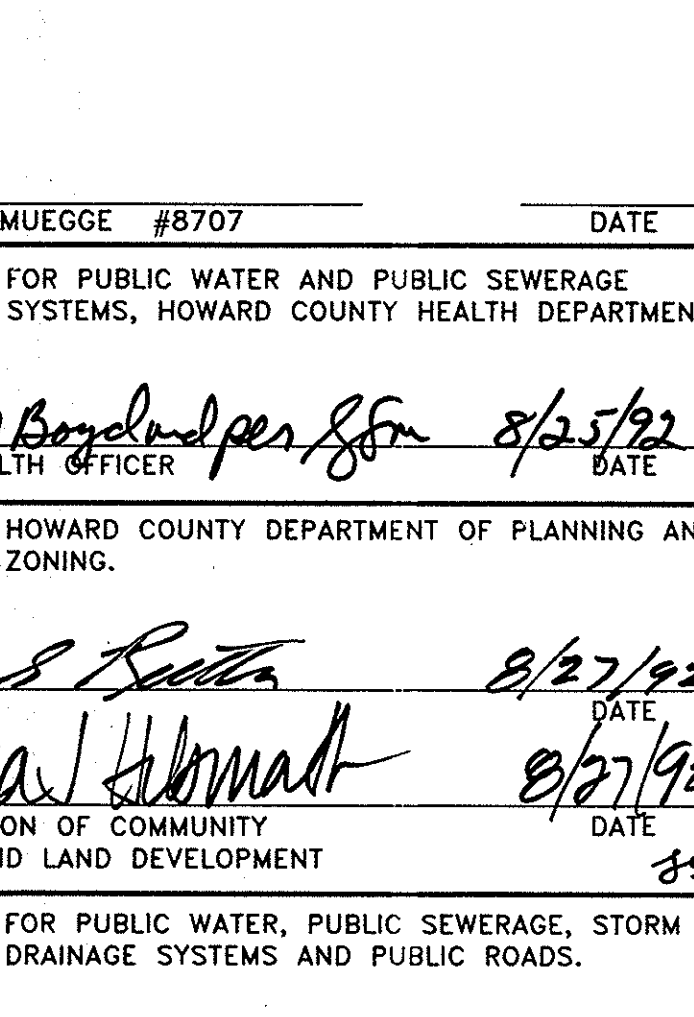 MUEGGE #8707 DATE
FOR PUBLIC WATER AND PUBLIC SEWERAGE
SYSTEMS, HOWARD COUNTY HEALTH DEPARTMEN
Boyd per 8/25/92
LTH OFFICER DATE
HOWARD COUNTY DEPARTMENT OF PLANNING AN
ZONING.
8/27/92
DATE
8/27/92
ON OF COMMUNITY DATE
ND LAND DEVELOPMENT
FOR PUBLIC WATER, PUBLIC SEWERAGE, STORM
DRAINAGE SYSTEMS AND PUBLIC ROADS.